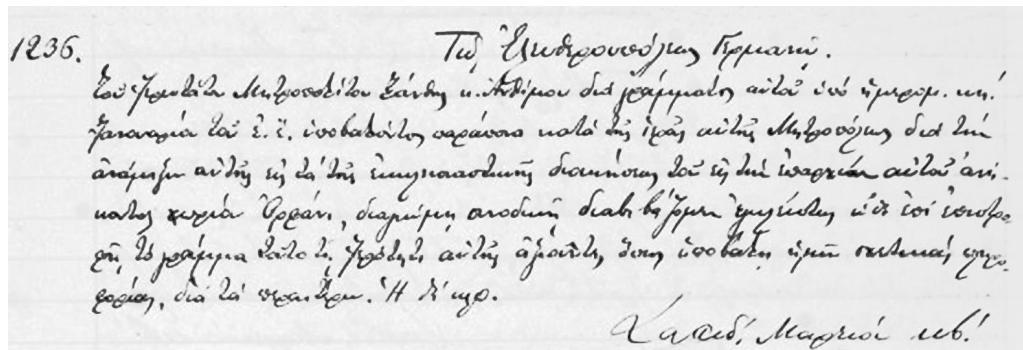 1236. Τῷ Ἐλευθερουπόλεως Γερμανῷ.
Τοῦ Ἱερωτάτου Μητροπολίτου Ξάνθης κ. Ἀνθίμου διὰ γράμματος αὐτοῦ ὑπὸ ἡμερομ. κη΄.
Ἰανουαρίου τοῦ ἐ. ἔ. ὑποβαλόντος παράπονα κατὰ τῆς ἱερᾶς αὐτῆς Μητροπόλεως διὰ τὴν
ἀνάμιξιν αὐτῆς εἰς τὰ τῆς ἐκκλησιαστικῆς διοικήσεως τοῦ εἰς τὴν ἐπαρχίαν αὐτοῦ ἀνή-
κοντος χωρίου Ὀρφάνι, συνοδικῇ διαβιβάζομεν ἐπὶ ἐπιστρο-
φῇ τὸ γράμμα τοῦτο τῇ Ἱερότητι αὐτῆς ὅπως ὑποβάλῃ ἡμῖν σχετικὰς πληρο-
φορίας, διὰ τὰ περαιτέρω. Ἡ δὲ κλπ.
͵αωπδ΄ Μαρτίου κβ΄.